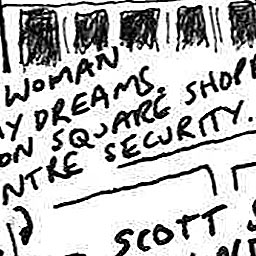 WOMAN
AY DREAMS.
ON SQUARE SHOPP
NTRE SECURITY.
SCOTT S